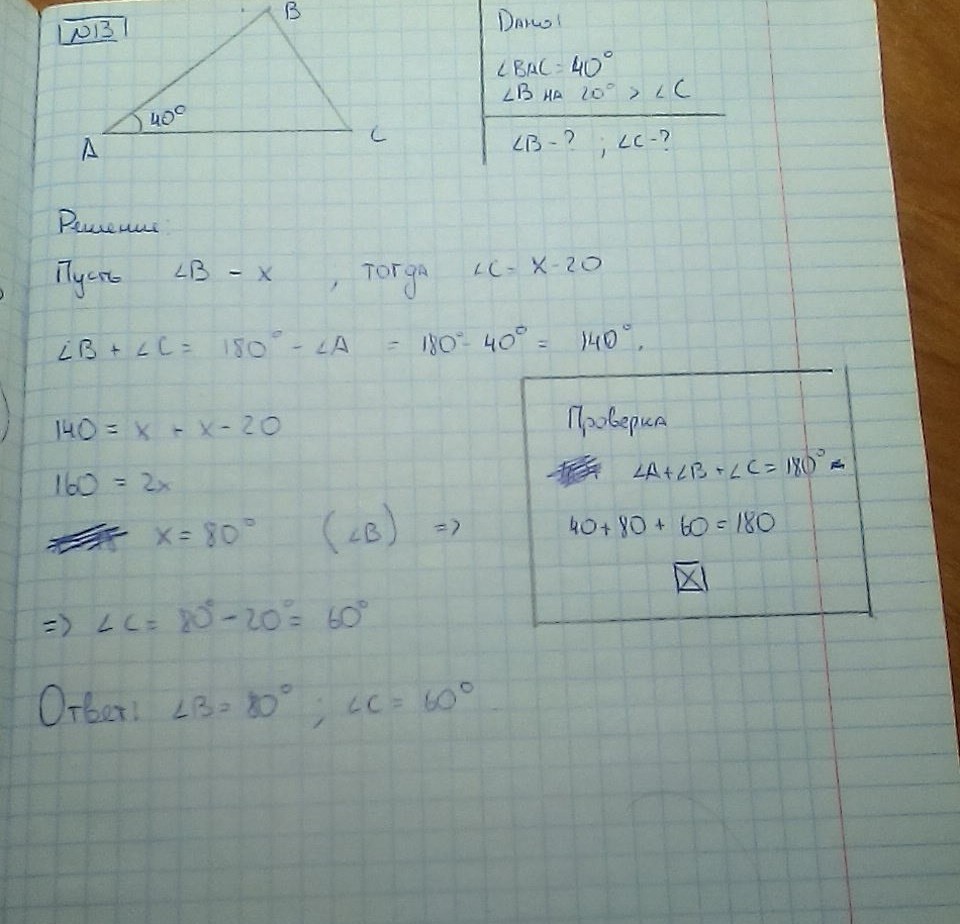 N13
B
40°
A
C
Дано:
∠BAC = 40°
∠B на 20° > ∠C
∠B - ? ; ∠C - ?
Решение:
Пусть ∠B - x , тогда ∠C = x - 20
∠B + ∠C = 180° - ∠A = 180° - 40° = 140°.
140 = x + x - 20
160 = 2x
x = 80° (∠B) =>
=> ∠C = 80° - 20° = 60°
Ответ: ∠B = 80° ; ∠C = 60°
Проверка
∠A + ∠B + ∠C = 180°
40 + 80 + 60 = 180